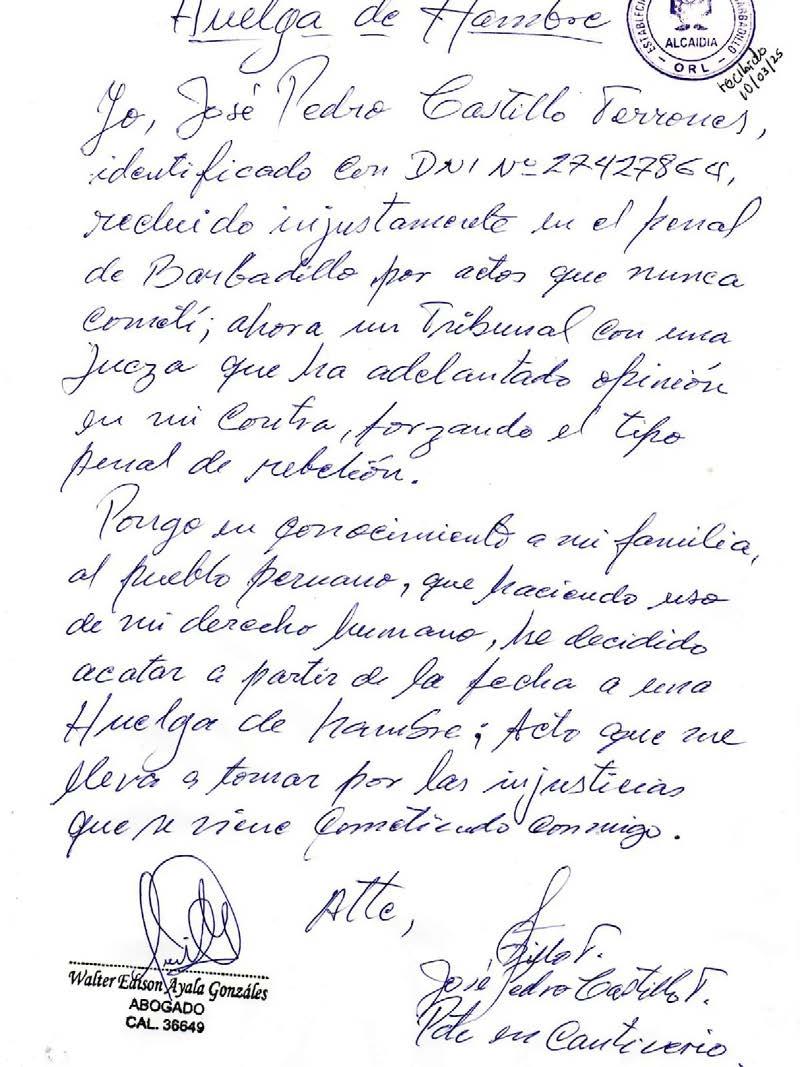 Huelga de Hambre
ESTABLECI
BARBADILLO
ALCAIDIA
- ORL -
recibido
10/03/25
Yo, José Pedro Castillo Terrones,
identificado con DNI Nº 27427864,
recluido injustamente en el penal
de Barbadillo por actos que nunca
cometí; ahora un Tribunal con una
jueza que ha adelantado opinión
en mi contra, forzando el tipo
penal de rebelión.
Pongo en conocimiento a mi familia,
al pueblo peruano, que haciendo uso
de mi derecho humano, he decidido
acatar a partir de la fecha a una
Huelga de hambre; Acto que me
lleva a tomar por las injusticias
que se viene cometiendo conmigo.
Atte,
José Pedro Castillo T.
Pdte en Cautiverio
Walter Edison Ayala Gonzáles
ABOGADO
CAL. 36649